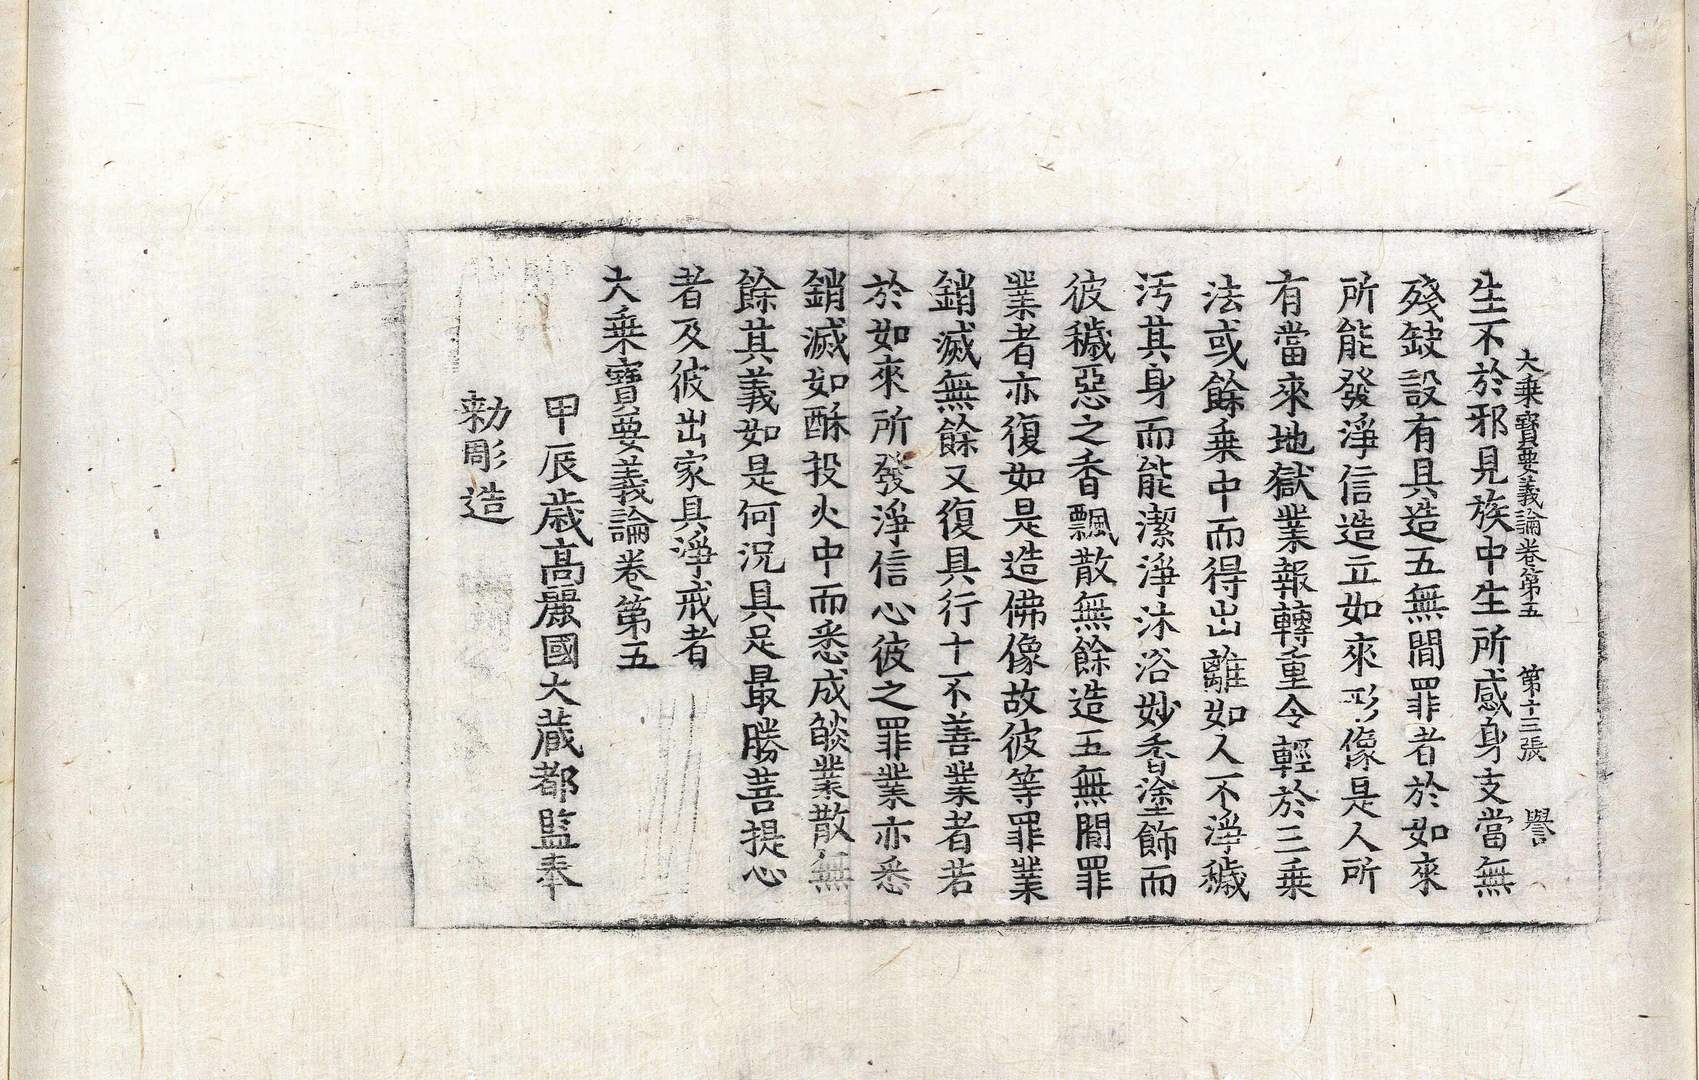 大乘寶要義論卷第五 第十三張 譽
生不於邪見族中生所感身支當無
殘缺設有具造五無間罪者於如來
所能發淨信造立如來形像是人所
有當來地獄業報轉重令輕於三乘
法或餘乘中而得出離如人不淨穢
汚其身而能潔淨沐浴妙香塗飾而
彼穢惡之香飄散無餘造五無間罪
業者亦復如是造佛像故彼等罪業
銷滅無餘又復具行十不善業者若
於如來所發淨信心彼之罪業亦悉
銷滅如酥投火中而悉成燄業散無
餘其義如是何況具足最勝菩提心
者及彼出家具淨戒者
大乘寶要義論卷第五
甲辰歲高麗國大藏都監奉
勅彫造